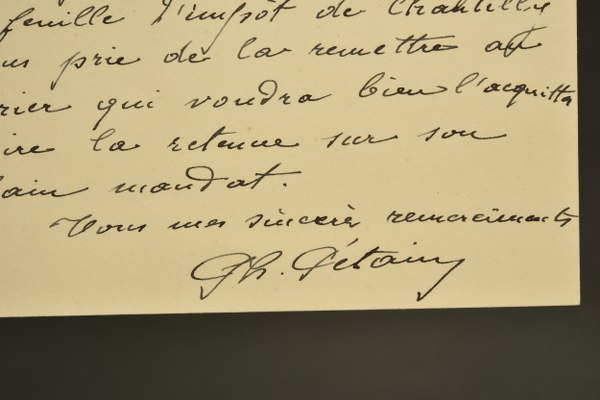 feuille d'impôt de Chantilly
us prie de la remettre au
rier qui voudra bien l'acquitter
ire la retenue sur son
ain mandat.
Vous mes sincères remerciements
Ph. Pétain